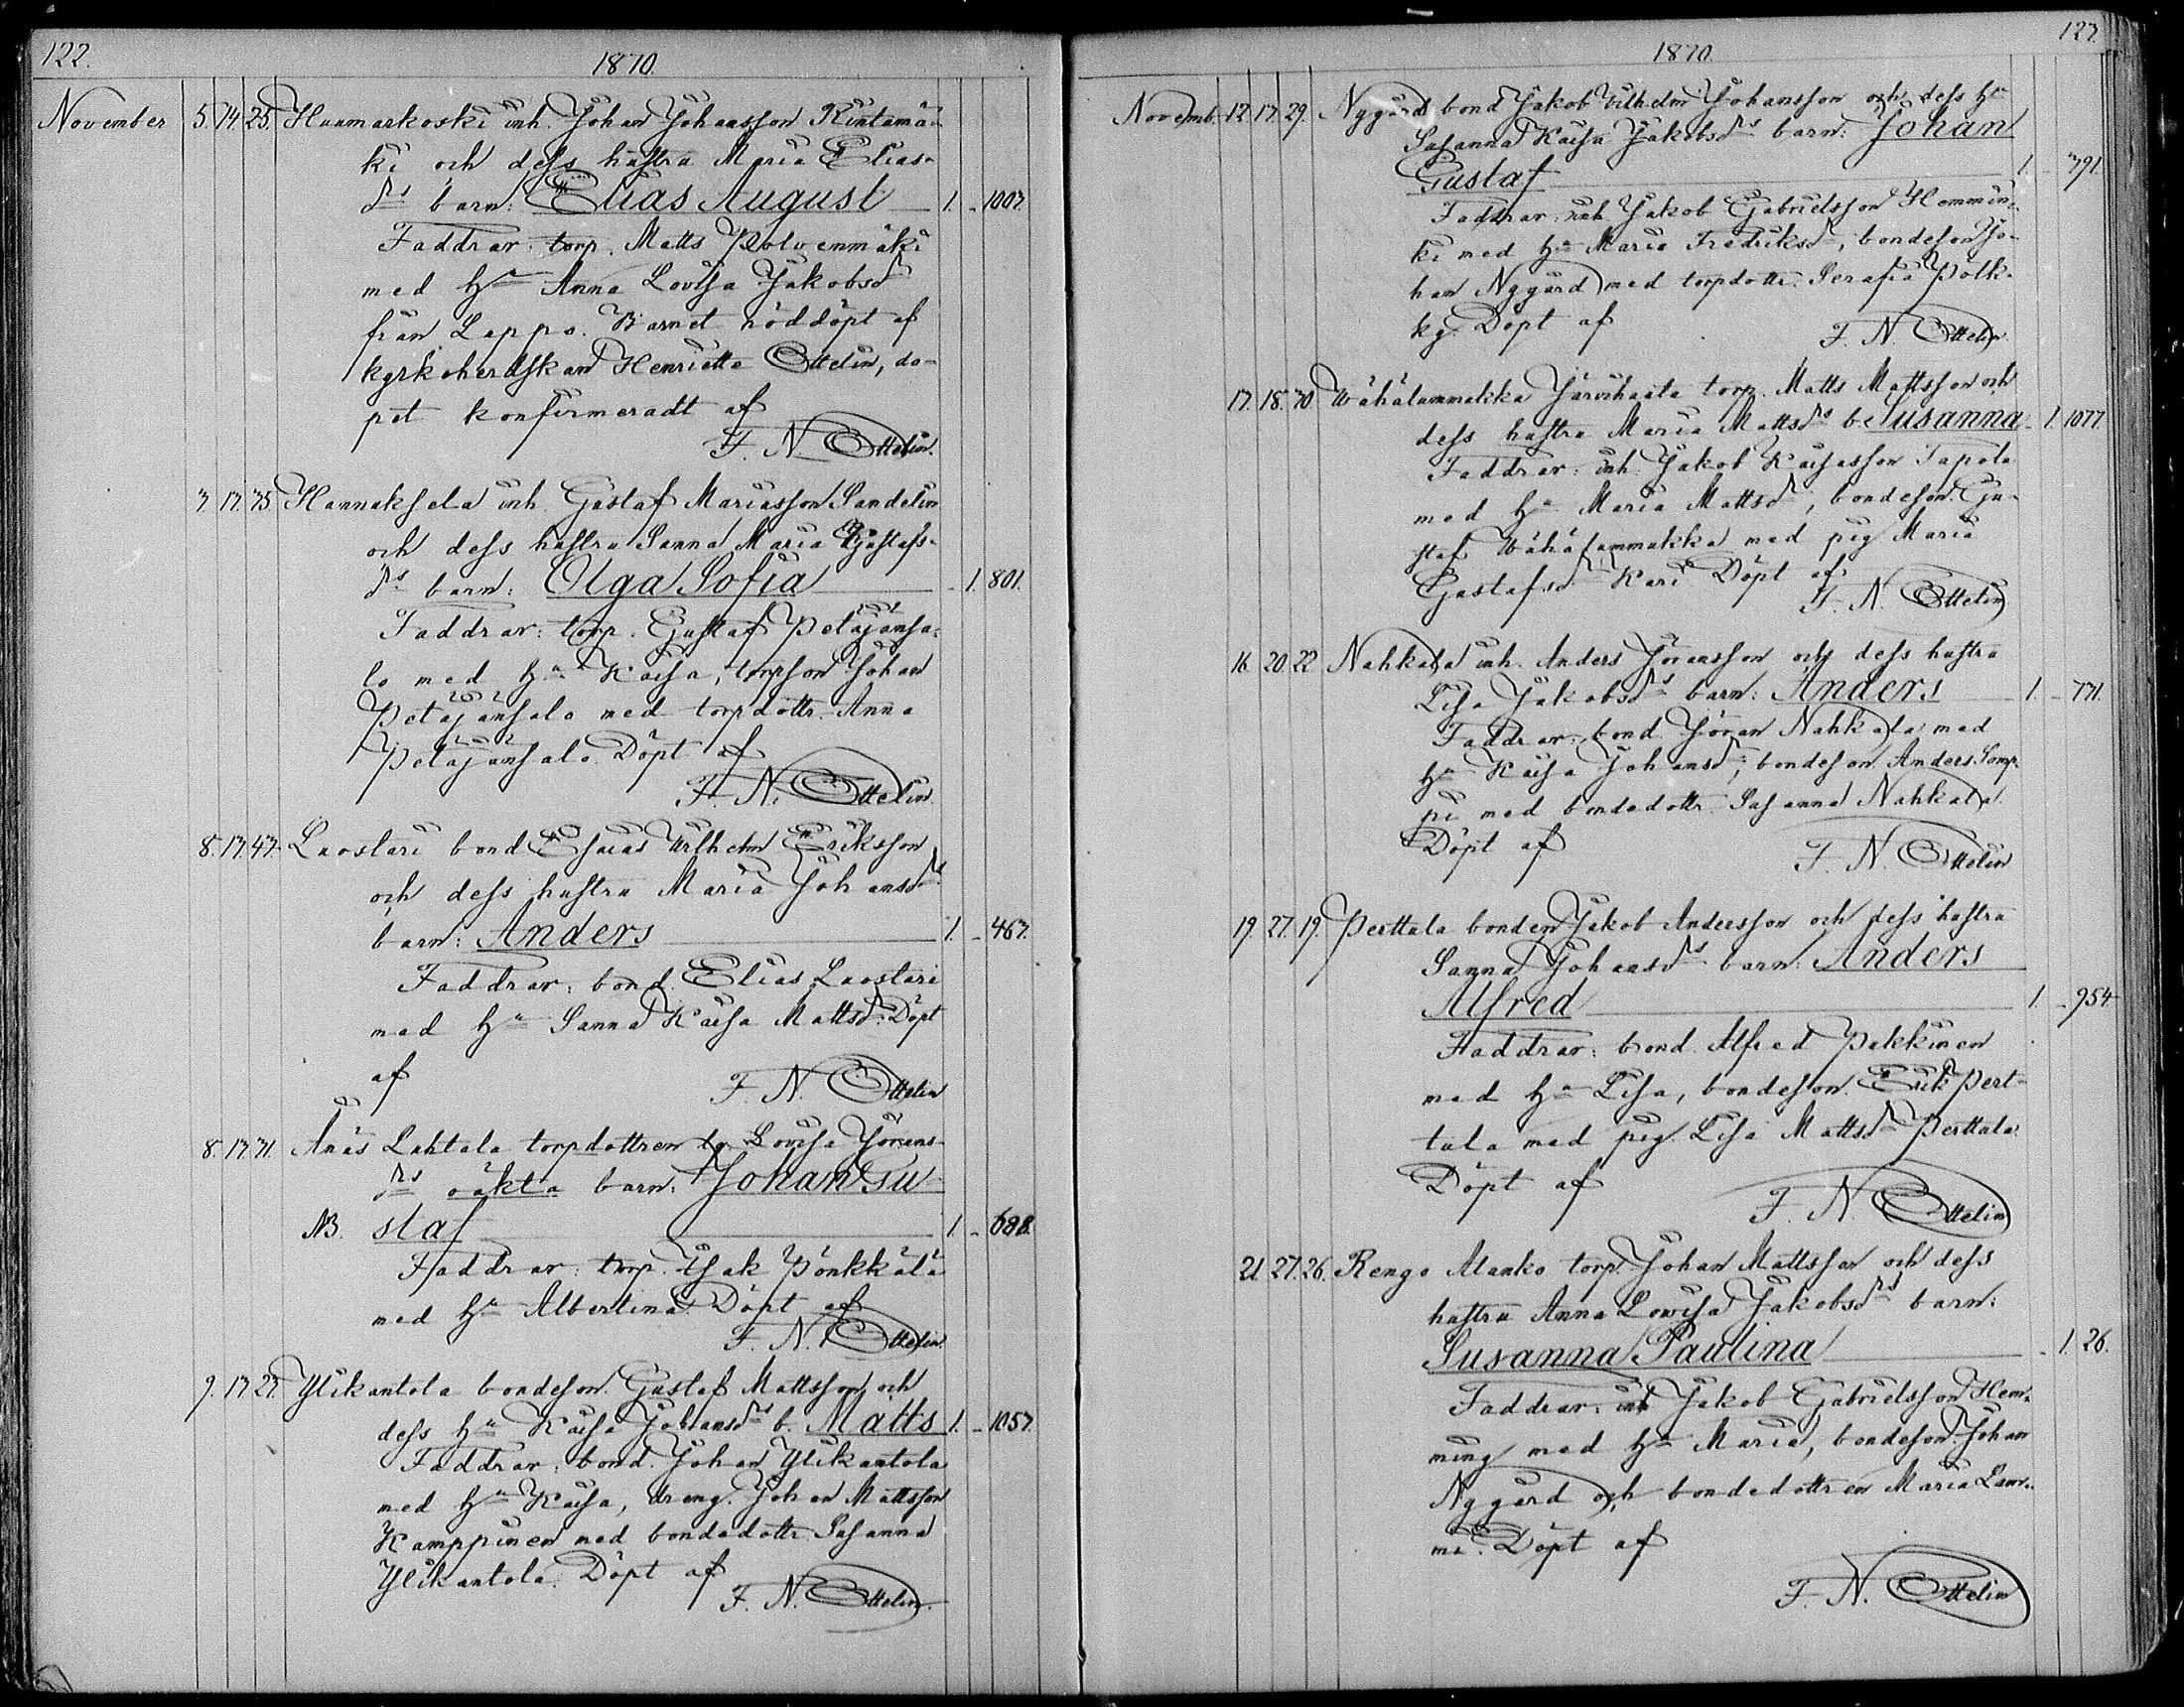 122.
1870.
November 5. 14. 25. Huumarkoski inh. Johan Johansson Rintamä-
ki och dess hustru Maria Elias-
drs barn: Elias August 1. - 1007.
Faddrar: torp. Matts Polvenmäki
med hu Anna Lovisa Jakobsd
från Lappo. Barnet nöddöpt af
kyrkoherdskan Henriette Ottelin, do-
pet konfirmeradt af
F. N. Ottelin.
7. 17. 35. Hannuksela inh. Gustaf Mariasson Sandelin
och dess hustru Sanna Maria Gustafs-
drs barn: Olga Sofia - 1. 801.
Faddrar: torp. Gustaf Petäjänsa-
lo med hu Kaisa, torpson Johan
Petäjänsalo med torpdottr. Anna
Petäjänsalo. Döpt af
F. N. Ottelin
8. 17. 47. Luostari bond Esaias Wilhelm Eriksson
och dess hustru Maria Johansdrs
barn: Anders 1. - 467.
Faddrar: bond. Elias Luostari
med hu Sanna Kaisa Mattsd: Döpt
af
F. N. Ottelin
8. 17. 31. Anäs Lahtala torpdottren Lovisa Jörans-
drs oäkta barn: Johan Gu-
NB. staf 1. - 688.
Faddrar: torp. Isak Pönkkälä
med hu Albertina. Döpt af
F. N. Ottelin.
9. 17. 27. Ylikantola bondeson. Gustaf Mattsson och
dess hu Kaisa Johansdrs b. Matts 1. - 1057.
Faddrar: bond. Johan Ylikantola
med hu Kaisa, dreng. Johan Mattsson
Kamppinen med bondedottr. Susanna
Ylikantola. Döpt af
F. N. Ottelin.
123.
1870.
Novemb. 12. 17. 29. Nygård bond Jakob Vilhelm Johansson och dess hu
Susanna Kaisa Jakobsdrs barn: Johan
Gustaf 1. - 791.
Faddrar: inh Jakob Gabrielsson Hemmin-
ki med hu Maria Fredriksd, bondeson Jo-
han Nygård med torpdottr. Serafia Pölk-
ky. Döpt af
F. N. Ottelin
17. 18. 30 Wähälummukka Järvihaata torp. Matts Mattsson och
dess hustru Maria Mattsdrs b: Susanna - 1. 1077.
Faddrar: inh. Jakob Kaisasson Tapola
med hu Maria Mattsd, bondeson. Gu-
staf Wähälummukka med pig Maria
Gustafsd Kari Döpt af
F. N. Ottelin
16. 20. 22 Nahkala inh. Anders Jöransson och dess hustru
Lisa Jakobsdrs barn: Anders 1. - 771.
Faddrar: bond. Jöran Nahkala med
hu Kaisa Johansd, bondeson Anders Somp-
pi med bondedottr Susanna Nahkala.
Döpt af
F. N. Ottelin
19 27. 19. Perttula bonden Jakob Andersson och dess hustru
Sanna Johansdrs barn: Anders
Alfred 1. - 954.
Faddrar: bond. Alfred Pukkinen
med hu Lisa, bondeson. Erik Pert-
tula med pig. Lisa Mattsd Perttula.
Döpt af
F. N. Ottelin
21 27. 26. Rengo Alanko torp. Johan Mattsson och dess
hustru Anna Lovisa Jakobsdrs barn:
Susanna Paulina - 1. 26.
Faddrar: inh Jakob Gabrielsson Hem-
ming med hu Maria, bondeson Johan
Nygård och bondedottren Maria
Döpt af
F. N. Ottelin